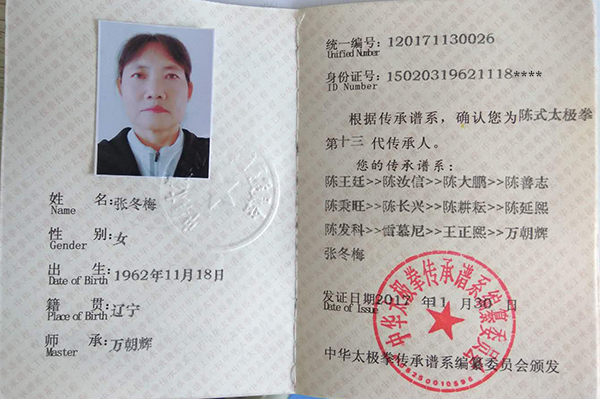 姓 名:张冬梅
Name
性 别:女
Gender
出 生:1962年11月18日
Date of Birth
籍 贯:辽宁
Place of Birth
师 承:万朝辉
Master
统一编号:120171130026
Unified Number
身份证号:15020319621118****
ID Number
根据传承谱系，确认您为陈式太极拳
第十三 代传承人。
您的传承谱系:
陈王廷>>陈汝信>>陈大鹏>>陈善志
陈秉旺>>陈长兴>>陈耕耘>>陈延熙
陈发科>>雷慕尼>>王正熙>>万朝辉
张冬梅
发证日期2017 年11 月30 日
Date of Issue
中华太极拳传承谱系编纂委员会颁发
中华太极拳传承谱系编纂委员会